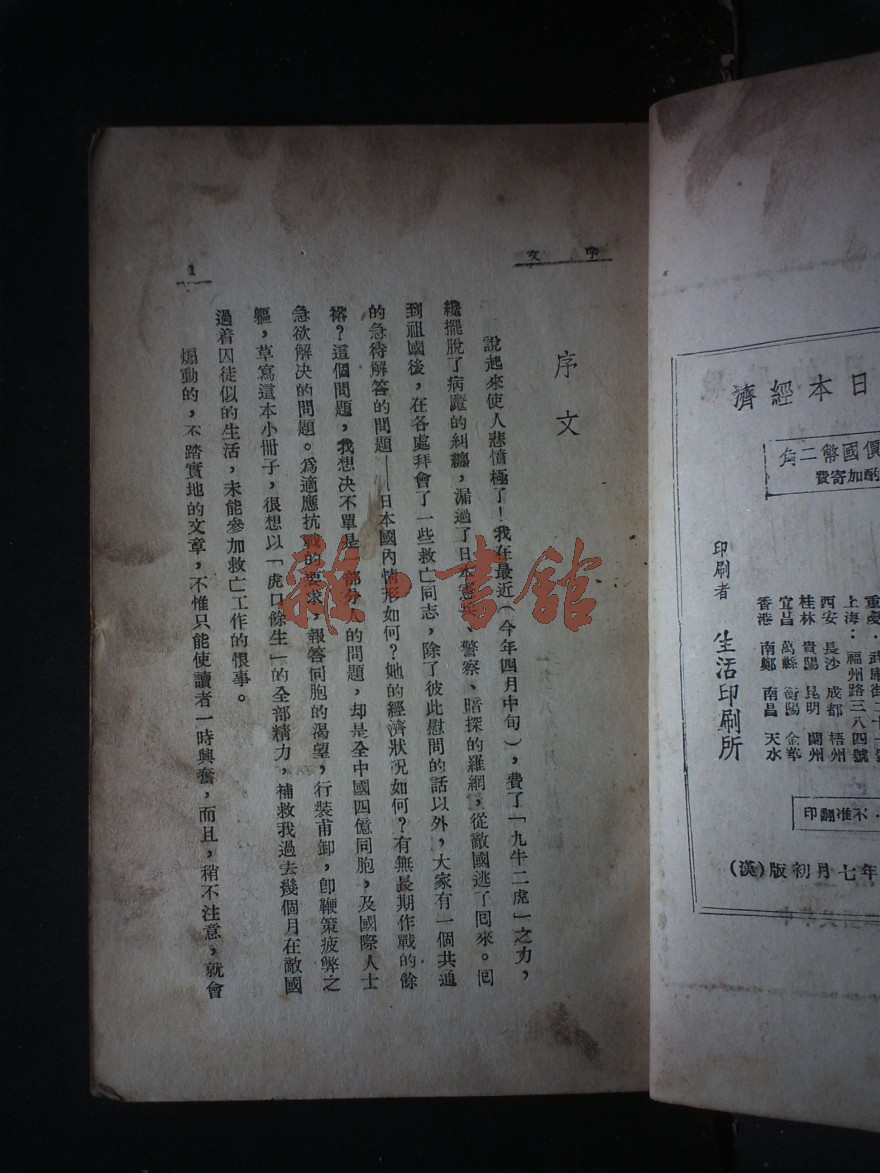 日本經濟
價國幣二角
酌加寄費
印刷者 生活印刷所
上海：福州路三八四號
西安 長沙 成都 梧州
桂林 貴陽 昆明 蘭州
宜昌 萬縣 衡陽 金華
香港 南鄭 南昌 天水
不准翻印
年七月初版(漢)
序文
序文
說起來使人悲憤極了！我在最近(今年四月中旬)，費了「九牛二虎」之力，
纔擺脫了病魔的糾纏，漏過了日本憲兵、警察、暗探的羅網，從敵國逃了囘來。囘
到祖國後，在各處拜會了一些救亡同志，除了彼此慰問的話以外，大家有一個共通
的急待解答的問題——日本國內情形如何？她的經濟狀況如何？有無長期作戰的餘
裕？這個問題，我想決不單是一部分人的問題，却是全中國四億同胞，及國際人士
急欲解決的問題。爲適應抗戰的要求，報答同胞的渴望，行裝甫卸，卽鞭策疲弊之
軀，草寫這本小冊子，很想以「虎口餘生」的全部精力，補救我過去幾個月在敵國
過着囚徒似的生活，未能參加救亡工作的恨事。
煽動的，不踏實地的文章，不惟只能使讀者一時興奮，而且，稍不注意，就會
1
雜·書館